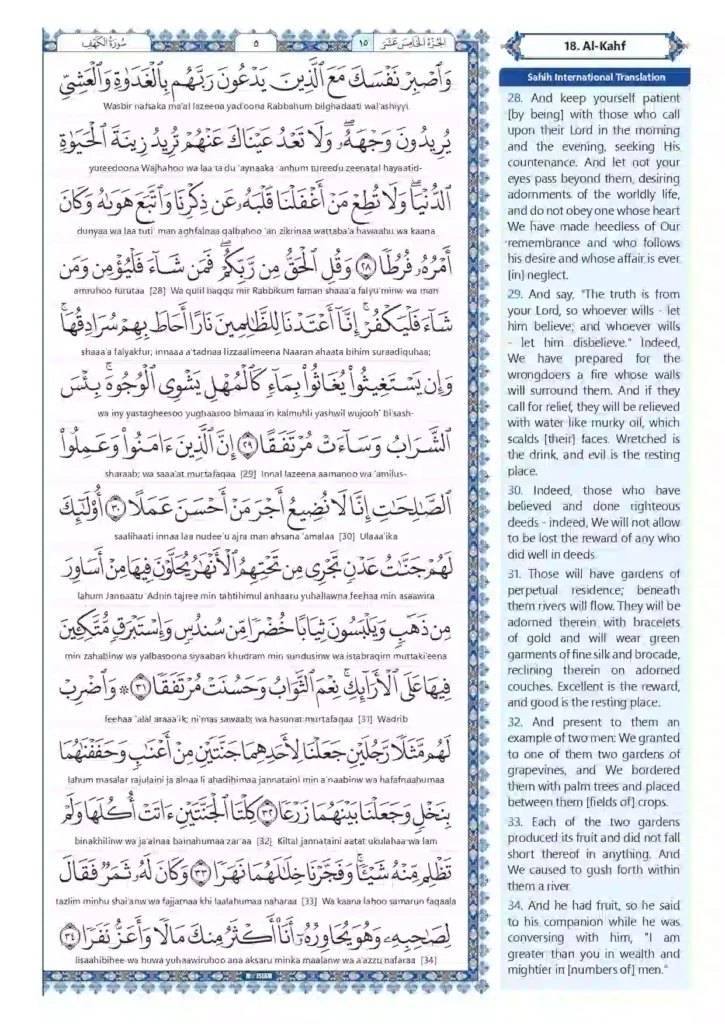 سُورَةُ الكَهْفِ
٥
١٥
الجُزْءُ الخَامِسَ عَشَرَ
وَٱصْبِرْ نَفْسَكَ مَعَ ٱلَّذِينَ يَدْعُونَ رَبَّهُم بِٱلْغَدَوٰةِ وَٱلْعَشِىِّ
Wasbir nafsaka ma'al lazeena yad'oona Rabbahum bilghadaati wal'ashiyyi
يُرِيدُونَ وَجْهَهُۥ ۖ وَلَا تَعْدُ عَيْنَاكَ عَنْهُمْ تُرِيدُ زِينَةَ ٱلْحَيَوٰةِ
yureedoona Wajhahoo wa laa ta'du 'aynaaka 'anhum tureedu zeenatal hayaatid-
ٱلدُّنْيَا ۖ وَلَا تُطِعْ مَنْ أَغْفَلْنَا قَلْبَهُۥ عَن ذِكْرِنَا وَٱتَّبَعَ هَوَىٰهُ وَكَانَ
dunyaa wa laa tuti' man aghfalnaa qalbahoo 'an zikrinaa wattaba'a hawaahu wa kaana
أَمْرُهُۥ فُرُطًا ﴿٢٨﴾ وَقُلِ ٱلْحَقُّ مِن رَّبِّكُمْ ۖ فَمَن شَآءَ فَلْيُؤْمِن وَمَن
amruhoo furutaa [28] Wa qulil haqqu mir Rabbikum faman shaaa'a falyu'minw wa man
شَآءَ فَلْيَكْفُرْ ۚ إِنَّآ أَعْتَدْنَا لِلظَّٰلِمِينَ نَارًا أَحَاطَ بِهِمْ سُرَادِقُهَا ۚ
shaaa'a falyakfur; innaaa a'tadnaa lizzaalimeena Naaran ahaata bihim suraadiquhaa;
وَإِن يَسْتَغِيثُوا۟ يُغَاثُوا۟ بِمَآءٍ كَٱلْمُهْلِ يَشْوِى ٱلْوُجُوهَ ۚ بِئْسَ
wa iny yastagheesoo yughaasoo bimaaa'in kalmuhli yashwil wujooh' bi'sash-
ٱلشَّرَابُ وَسَآءَتْ مُرْتَفَقًا ﴿٢٩﴾ إِنَّ ٱلَّذِينَ ءَامَنُوا۟ وَعَمِلُوا۟
sharaab; wa saaa'at murtafaqaa [29] Innal lazeena aamanoo wa 'amilus-
ٱلصَّٰلِحَٰتِ إِنَّا لَا نُضِيعُ أَجْرَ مَنْ أَحْسَنَ عَمَلًا ﴿٣٠﴾ أُو۟لَٰٓئِكَ
saalihaati innaa laa nudee'u ajra man ahsana 'amalaa [30] Ulaaa'ika
لَهُمْ جَنَّٰتُ عَدْنٍ تَجْرِى مِن تَحْتِهِمُ ٱلْأَنْهَٰرُ يُحَلَّوْنَ فِيهَا مِنْ أَسَاوِرَ
lahum Jannaatu 'Adnin tajree min tahtihimul anhaaru yuhallawna feehaa min asaawira
مِن ذَهَبٍ وَيَلْبَسُونَ ثِيَابًا خُضْرًا مِّن سُندُسٍ وَإِسْتَبْرَقٍ مُّتَّكِـِٔينَ
min zahabinw wa yalbasoona siyaaban khudram min sundusinw wa istabraqim muttaki'eena
فِيهَا عَلَى ٱلْأَرَآئِكِ ۚ نِعْمَ ٱلثَّوَابُ وَحَسُنَتْ مُرْتَفَقًا ﴿٣١﴾ ۞ وَٱضْرِبْ
feehaa 'alal araaa'ik; ni'mas sawaab; wa hasunat murtafaqaa [31] Wadrib
لَهُم مَّثَلًا رَّجُلَيْنِ جَعَلْنَا لِأَحَدِهِمَا جَنَّتَيْنِ مِنْ أَعْنَٰبٍ وَحَفَفْنَٰهُمَا
lahum masalar rajulaini ja'alnaa li ahadihimaa jannataini min a'naabinw wa hafafnaahumaa
بِنَخْلٍ وَجَعَلْنَا بَيْنَهُمَا زَرْعًا ﴿٣٢﴾ كِلْتَا ٱلْجَنَّتَيْنِ ءَاتَتْ أُكُلَهَا وَلَمْ
binakhilinw wa ja'alnaa bainahumaa zar'aa [32] Kiltal jannataini aatat ukulahaa wa lam
تَظْلِم مِّنْهُ شَيْـًٔا ۚ وَفَجَّرْنَا خِلَٰلَهُمَا نَهَرًا ﴿٣٣﴾ وَكَانَ لَهُۥ ثَمَرٌ فَقَالَ
tazlim minhu shai'anw wa fajjarnaa khi laalahumaa naharaa [33] Wa kaana lahoo samarun faqaala
لِصَٰحِبِهِۦ وَهُوَ يُحَاوِرُهُۥٓ أَنَا۠ أَكْثَرُ مِنكَ مَالًا وَأَعَزُّ نَفَرًا ﴿٣٤﴾
lisaahibihee wa huwa yuhaawiruhoo ana aksaru minka maalanw wa a'azzu nafaraa [34]
18. Al-Kahf
Sahih International Translation
28. And keep yourself patient
[by being] with those who call
upon their Lord in the morning
and the evening, seeking His
countenance. And let not your
eyes pass beyond them, desiring
adornments of the worldly life,
and do not obey one whose heart
We have made heedless of Our
remembrance and who follows
his desire and whose affair is ever
[in] neglect.
29. And say, "The truth is from
your Lord, so whoever wills - let
him believe; and whoever wills
- let him disbelieve." Indeed,
We have prepared for the
wrongdoers a fire whose walls
will surround them. And if they
call for relief, they will be relieved
with water like murky oil, which
scalds [their] faces. Wretched is
the drink, and evil is the resting
place.
30. Indeed, those who have
believed and done righteous
deeds - indeed, We will not allow
to be lost the reward of any who
did well in deeds.
31. Those will have gardens of
perpetual residence; beneath
them rivers will flow. They will be
adorned therein with bracelets
of gold and will wear green
garments of fine silk and brocade,
reclining therein on adorned
couches. Excellent is the reward,
and good is the resting place.
32. And present to them an
example of two men: We granted
to one of them two gardens of
grapevines, and We bordered
them with palm trees and placed
between them [fields of] crops.
33. Each of the two gardens
produced its fruit and did not fall
short thereof in anything. And
We caused to gush forth within
them a river.
34. And he had fruit, so he said
to his companion while he was
conversing with him, "I am
greater than you in wealth and
mightier in [numbers of] men."